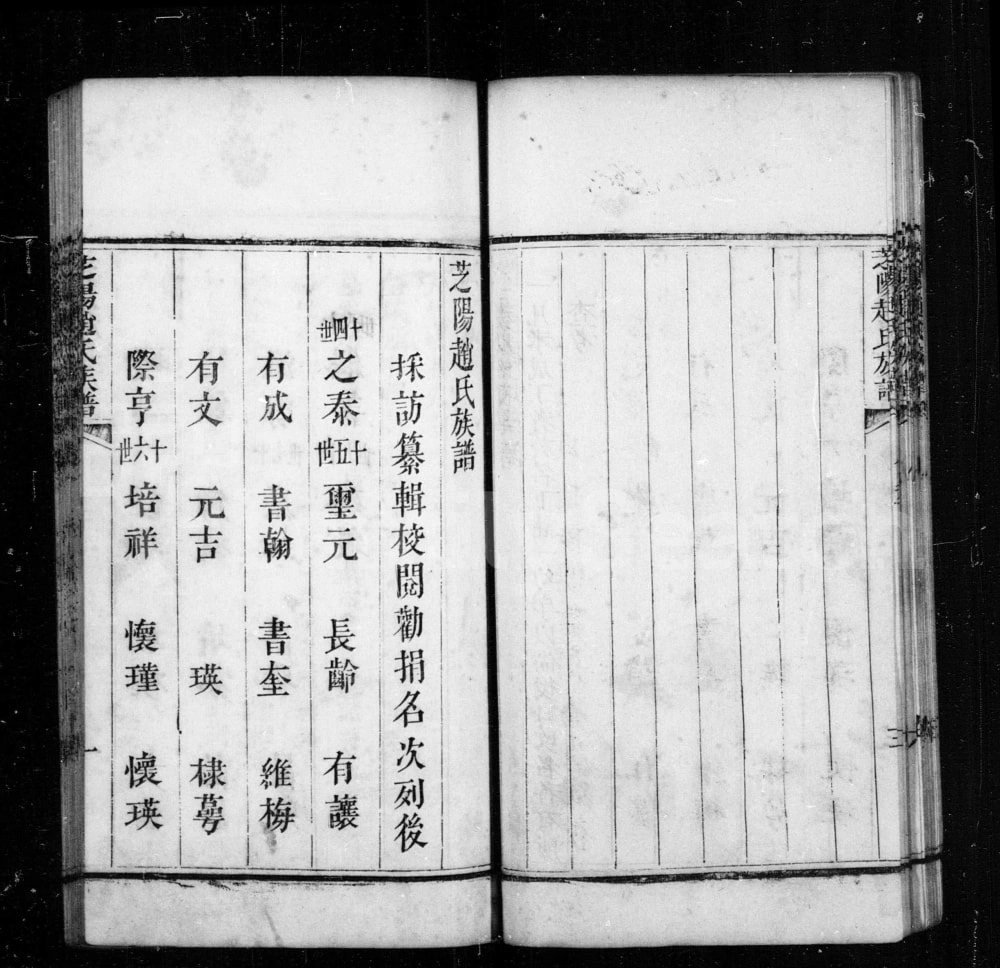 芝陽趙氏族譜
三
芝陽趙氏族譜
採訪纂輯校閱勸捐名次列後
十四世之泰 十五世璽元 長齡 有讓
有成 書翰 書奎 維梅
有文 元吉 瑛 棣萼
際亨 十六世培祥 懷瑾 懷瑛
芝陽趙氏族譜
一